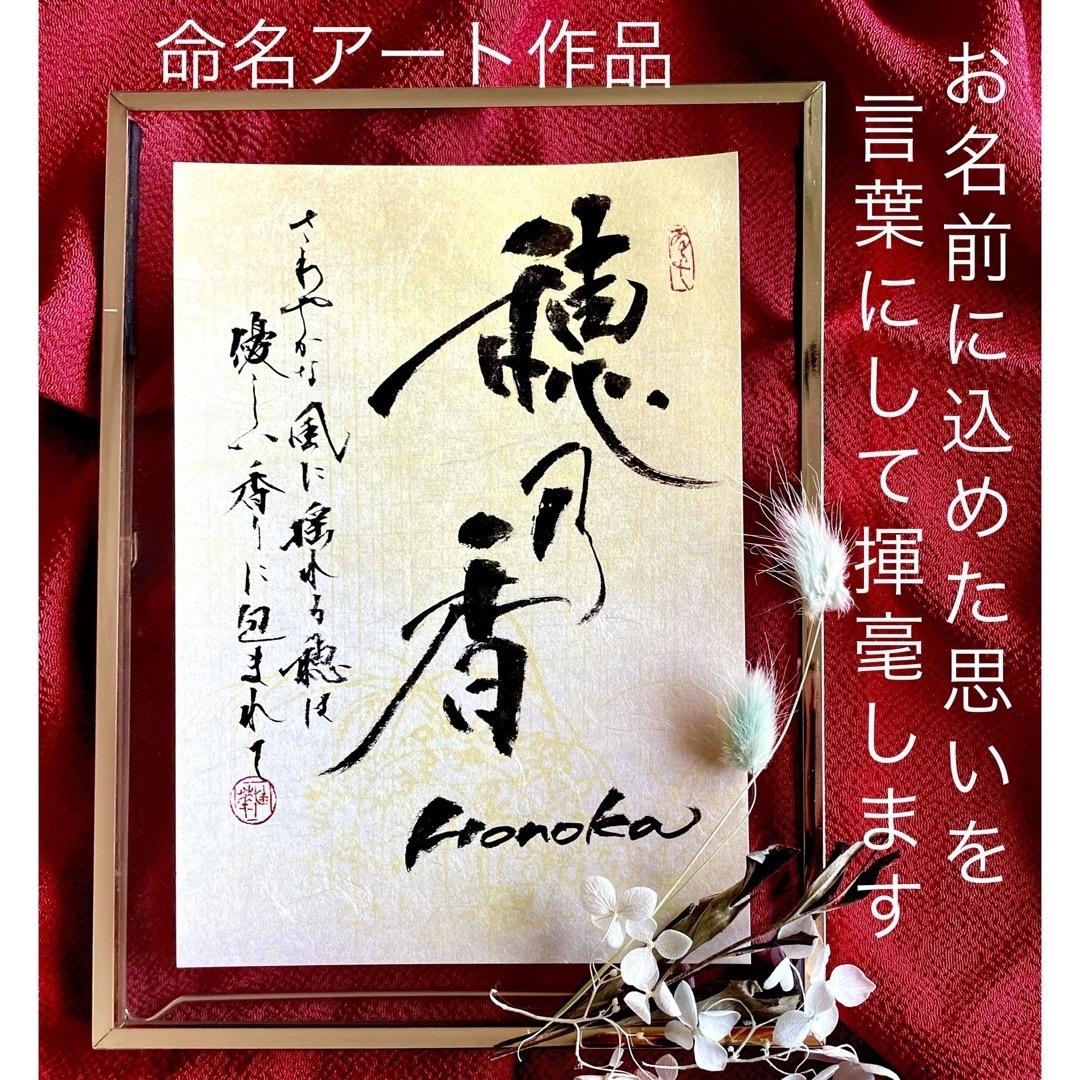 命名アート作品
お名前に込めた思いを
言葉にして揮毫します
穂乃香
Honoka
さわやかな風に揺れる穂は
優しい香りに包まれて